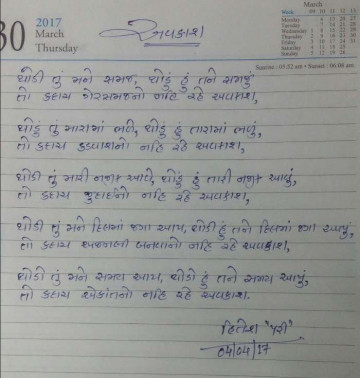 30
2017
March
Thursday
March
Week 09 10 11 12 13
Monday 6 13 20 27
Tuesday 7 14 21 28
Wednesday 1 8 15 22 29
Thursday 2 9 16 23 30
Friday 3 10 17 24 31
Saturday 4 11 18 25
Sunday 5 12 19 26
Sunrise : 05:52 am • Sunset : 06:08 am
અવકાશ
થોડી તું મને સમજ, થોડું હું તને સમજું
તો કદાચ ગેરસમજનો નહિ રહે અવકાશ,
થોડું તું મારામાં ભળે, થોડું હું તારામાં ભળું,
તો કદાચ કડવાશનો નહિ રહે અવકાશ,
થોડી તું મારી નજીક આવે, થોડું હું તારી નજીક આવું,
તો કદાચ જુદાઈનો નહિ રહે અવકાશ,
થોડી તું મને દિલમાં જગા આપ, થોડી હું તને દિલમાં જગા આપું,
તો કદાચ અજનબી બનવાનો નહિ રહે અવકાશ,
થોડો તું મને સમય આપ, થોડો હું તને સમય આપું,
તો કદાચ એકાંતનો નહિ રહે અવકાશ.
હિતેશ "પરી"
04/04/17